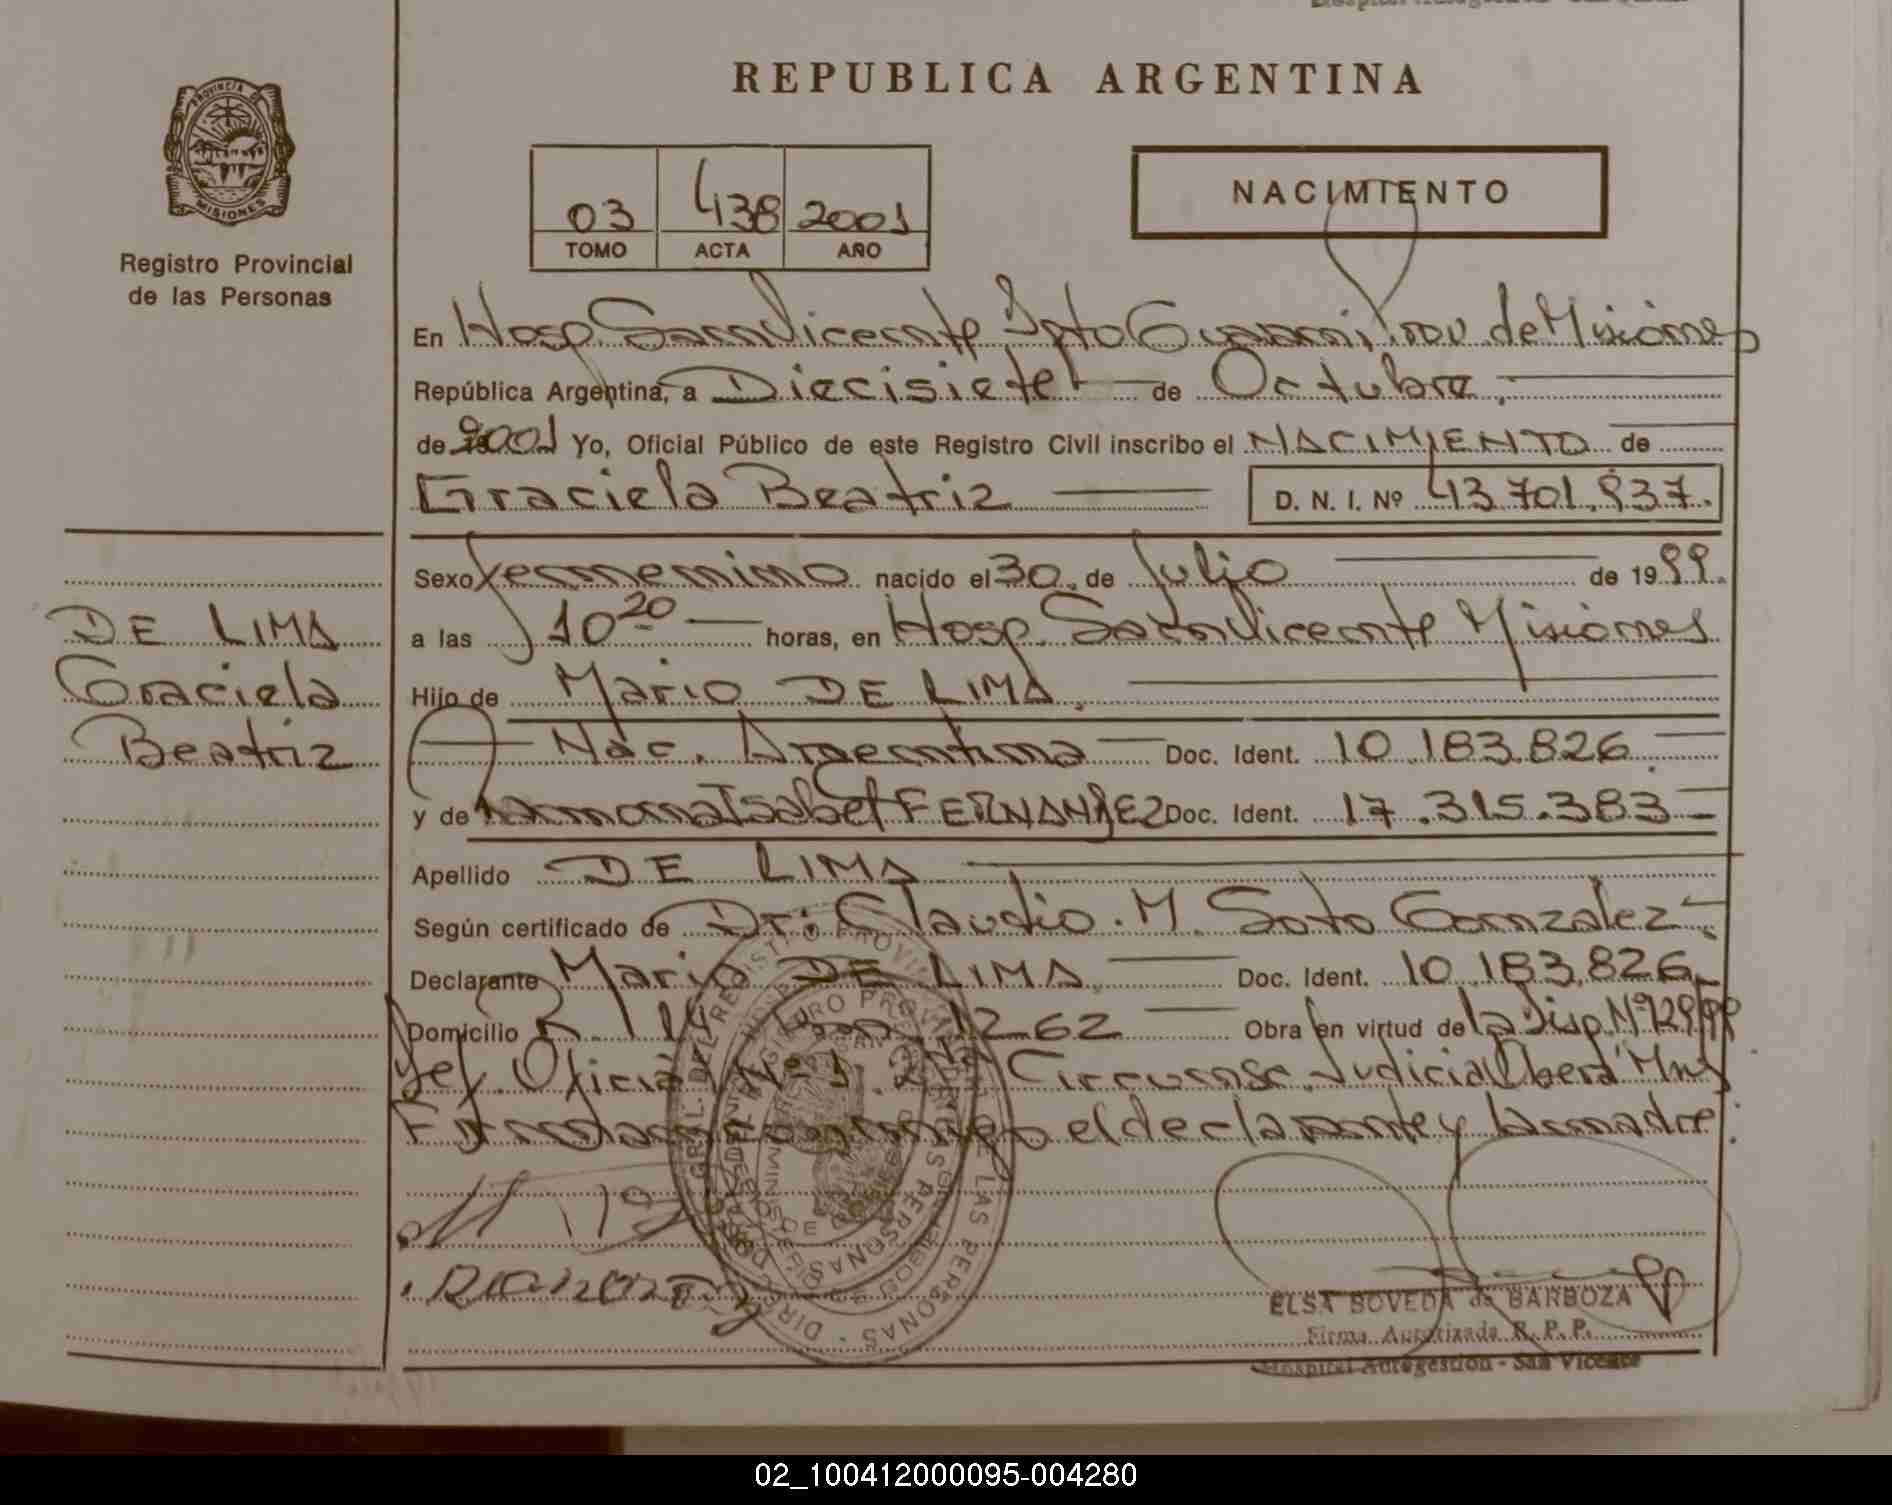 REPUBLICA ARGENTINA
PROVINCIA DE
MISIONES
Registro Provincial
de las Personas
03 438 2001
TOMO ACTA AÑO
NACIMIENTO
En Hosp San Vicente Dpto Guarani Prov. de Misiones
República Argentina, a Diecisiete de Octubre
de 2001 Yo, Oficial Público de este Registro Civil inscribo el NACIMIENTO de
Graciela Beatriz D. N. I. Nº 43.701.937.
Sexo femenino nacido el 30 de Julio de 1999.
a las 10 20 horas, en Hosp. San Vicente Misiones
Hijo de Mario DE LIMA
Nac. Argentina Doc. Ident. 10.183.826
y de Ramona Isabel FERNANDEZ Doc. Ident. 17.315.383
Apellido DE LIMA
Según certificado de Dr. Claudio M. Soto Gonzalez
Declarante Mario DE LIMA Doc. Ident. 10.183.826
Domicilio R. 14 Km 1262 Obra en virtud de la Disp. Nº
Def. Oficial Nº 1 2da Circunsc. Judicial Oberá Mnes
Firman conmigo el declarante y la madre.
DE LIMA
Graciela
Beatriz
ELSA BOVEDA de BARBOZA
Firma Autorizada R. P. P.
Hospital Autogestion - San Vicente
02_100412000095-004280